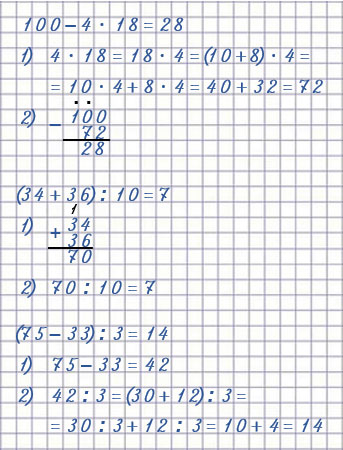 100 − 4 · 18 = 28
1) 4 · 18 = 18 · 4 = (10 + 8) · 4 =
= 10 · 4 + 8 · 4 = 40 + 32 = 72
2) − 100
72
28
(34 + 36) : 10 = 7
1
1) + 34
36
70
2) 70 : 10 = 7
(75 − 33) : 3 = 14
1) 75 − 33 = 42
2) 42 : 3 = (30 + 12) : 3 =
= 30 : 3 + 12 : 3 = 10 + 4 = 14